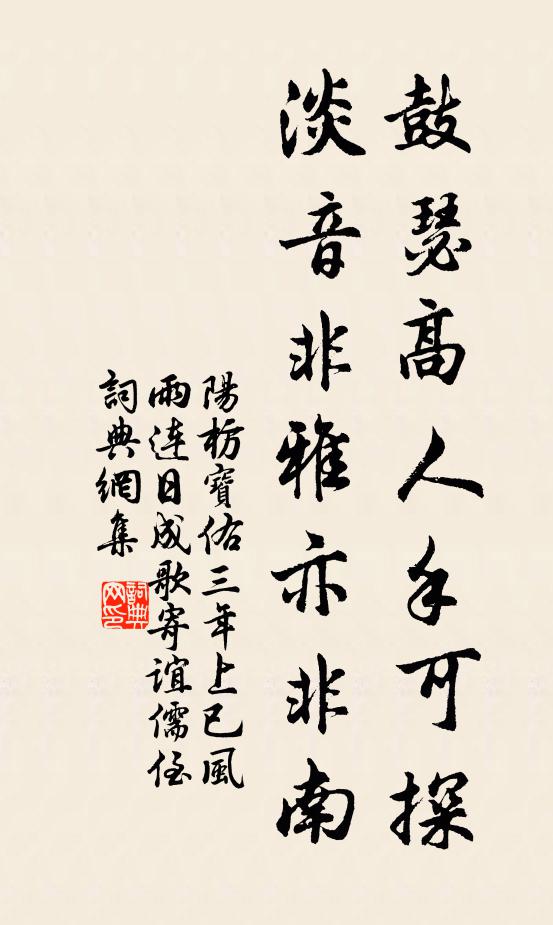 鼓瑟高人手可探
淡音非雅亦非南
陽枋寶佑三年上巳風
雨連日成歌寄誼儒侄
詞典網集
詞典
網印